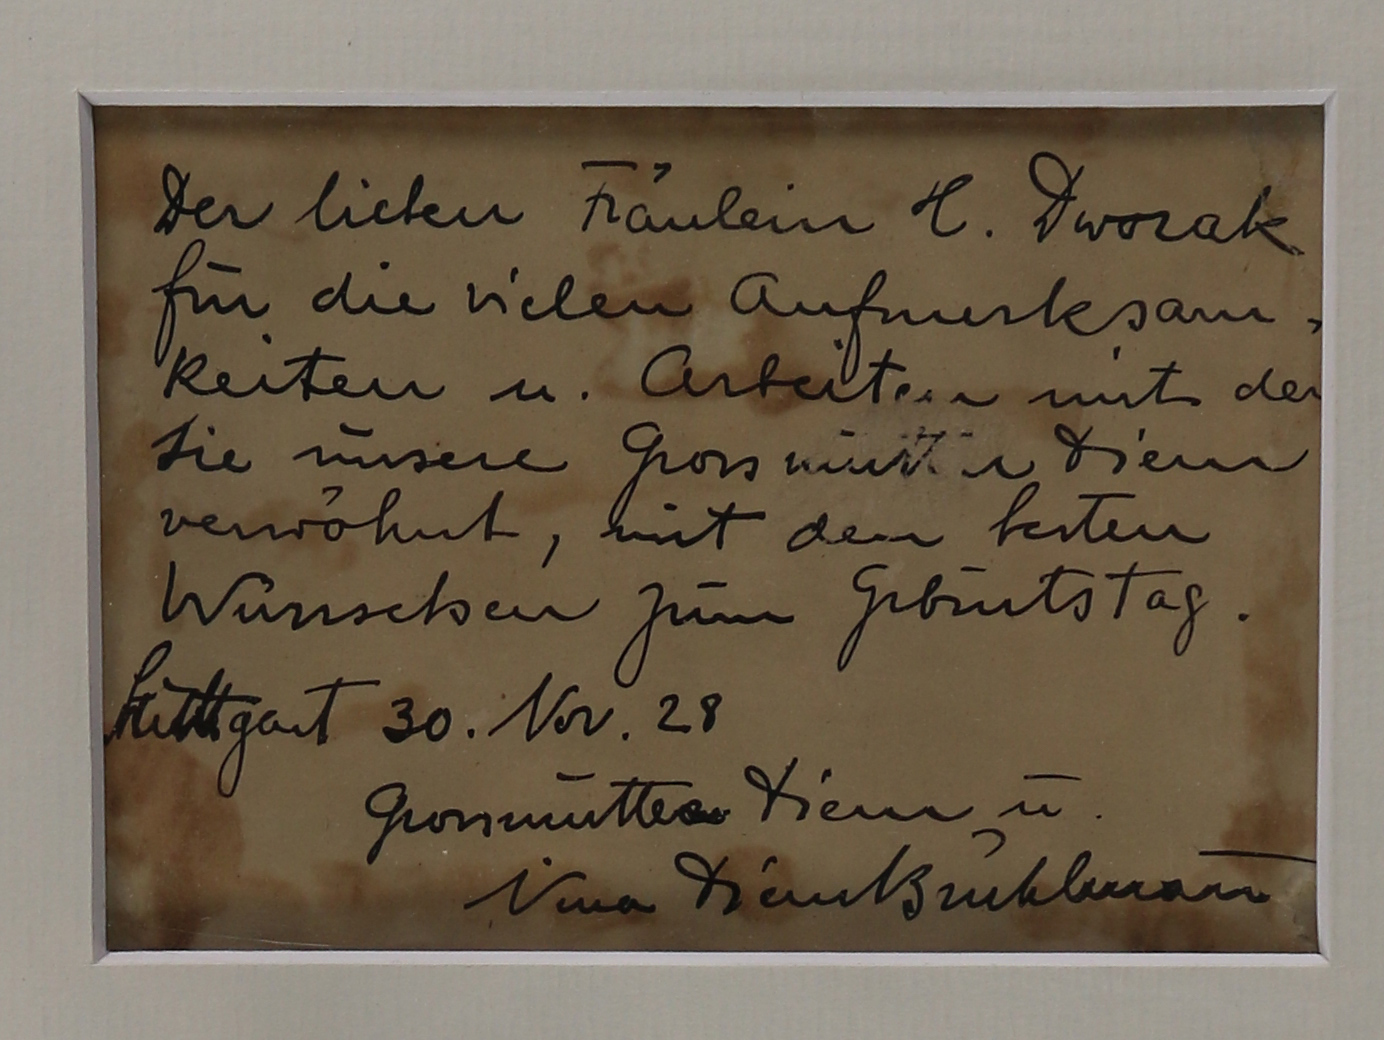 Der lieben Fräulein H. Dworak
für die vielen Aufmerksam-
keiten u. Arbeiten mit den
Sie unsere Grossmutter Diem
verwöhnt, mit den besten
Wünschen zum Geburtstag.
Stuttgart 30. Nov. 28
Grossmutter Diem u.
Nina Diem Brühlmann